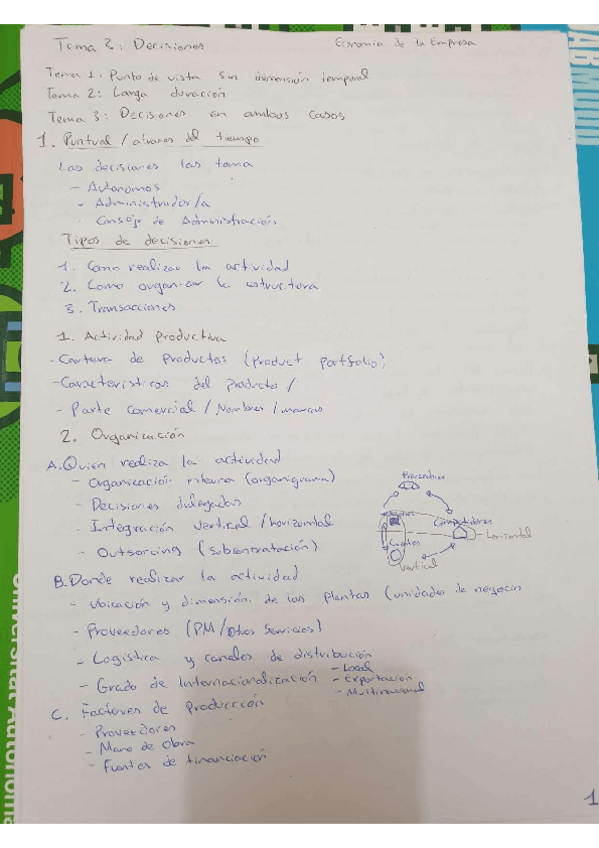 Tema 3: Decisiones
Economía de la Empresa
Tema 1: Punto de vista sin dimensión temporal
Tema 2: Larga duración
Tema 3: Decisiones en ambos casos
1. Puntual / a través del tiempo
Las decisiones las toma
- Autónomos
- Administrador/a
- Consejo de Administración
Tipos de decisiones
1. Como realizar la actividad
2. Como organizar la estructura
3. Transacciones
1. Actividad Productiva
- Cartera de Productos (product portfolio)
- Características del producto /
- Parte comercial / Nombres / marcas
2. Organización
A. Quien realiza la actividad
- Organización interna (organigrama)
- Decisiones delegadas
- Integración vertical / horizontal
- Outsorcing (subcontratación)
Proveedores
Competidores
- horizontal
Vertical
B. Donde realizar la actividad
- Ubicación y dimensión de las plantas (unidades de negocio)
- Proveedores (PM / Otros Servicios)
- Logística y canales de distribución
- Grado de Internacionalización
- Local
- Exportación
- Multinacional
C. Factores de Producción
- Proveedores
- Mano de Obra
- Fuentes de financiación
1
Universitat Autònoma
LAB